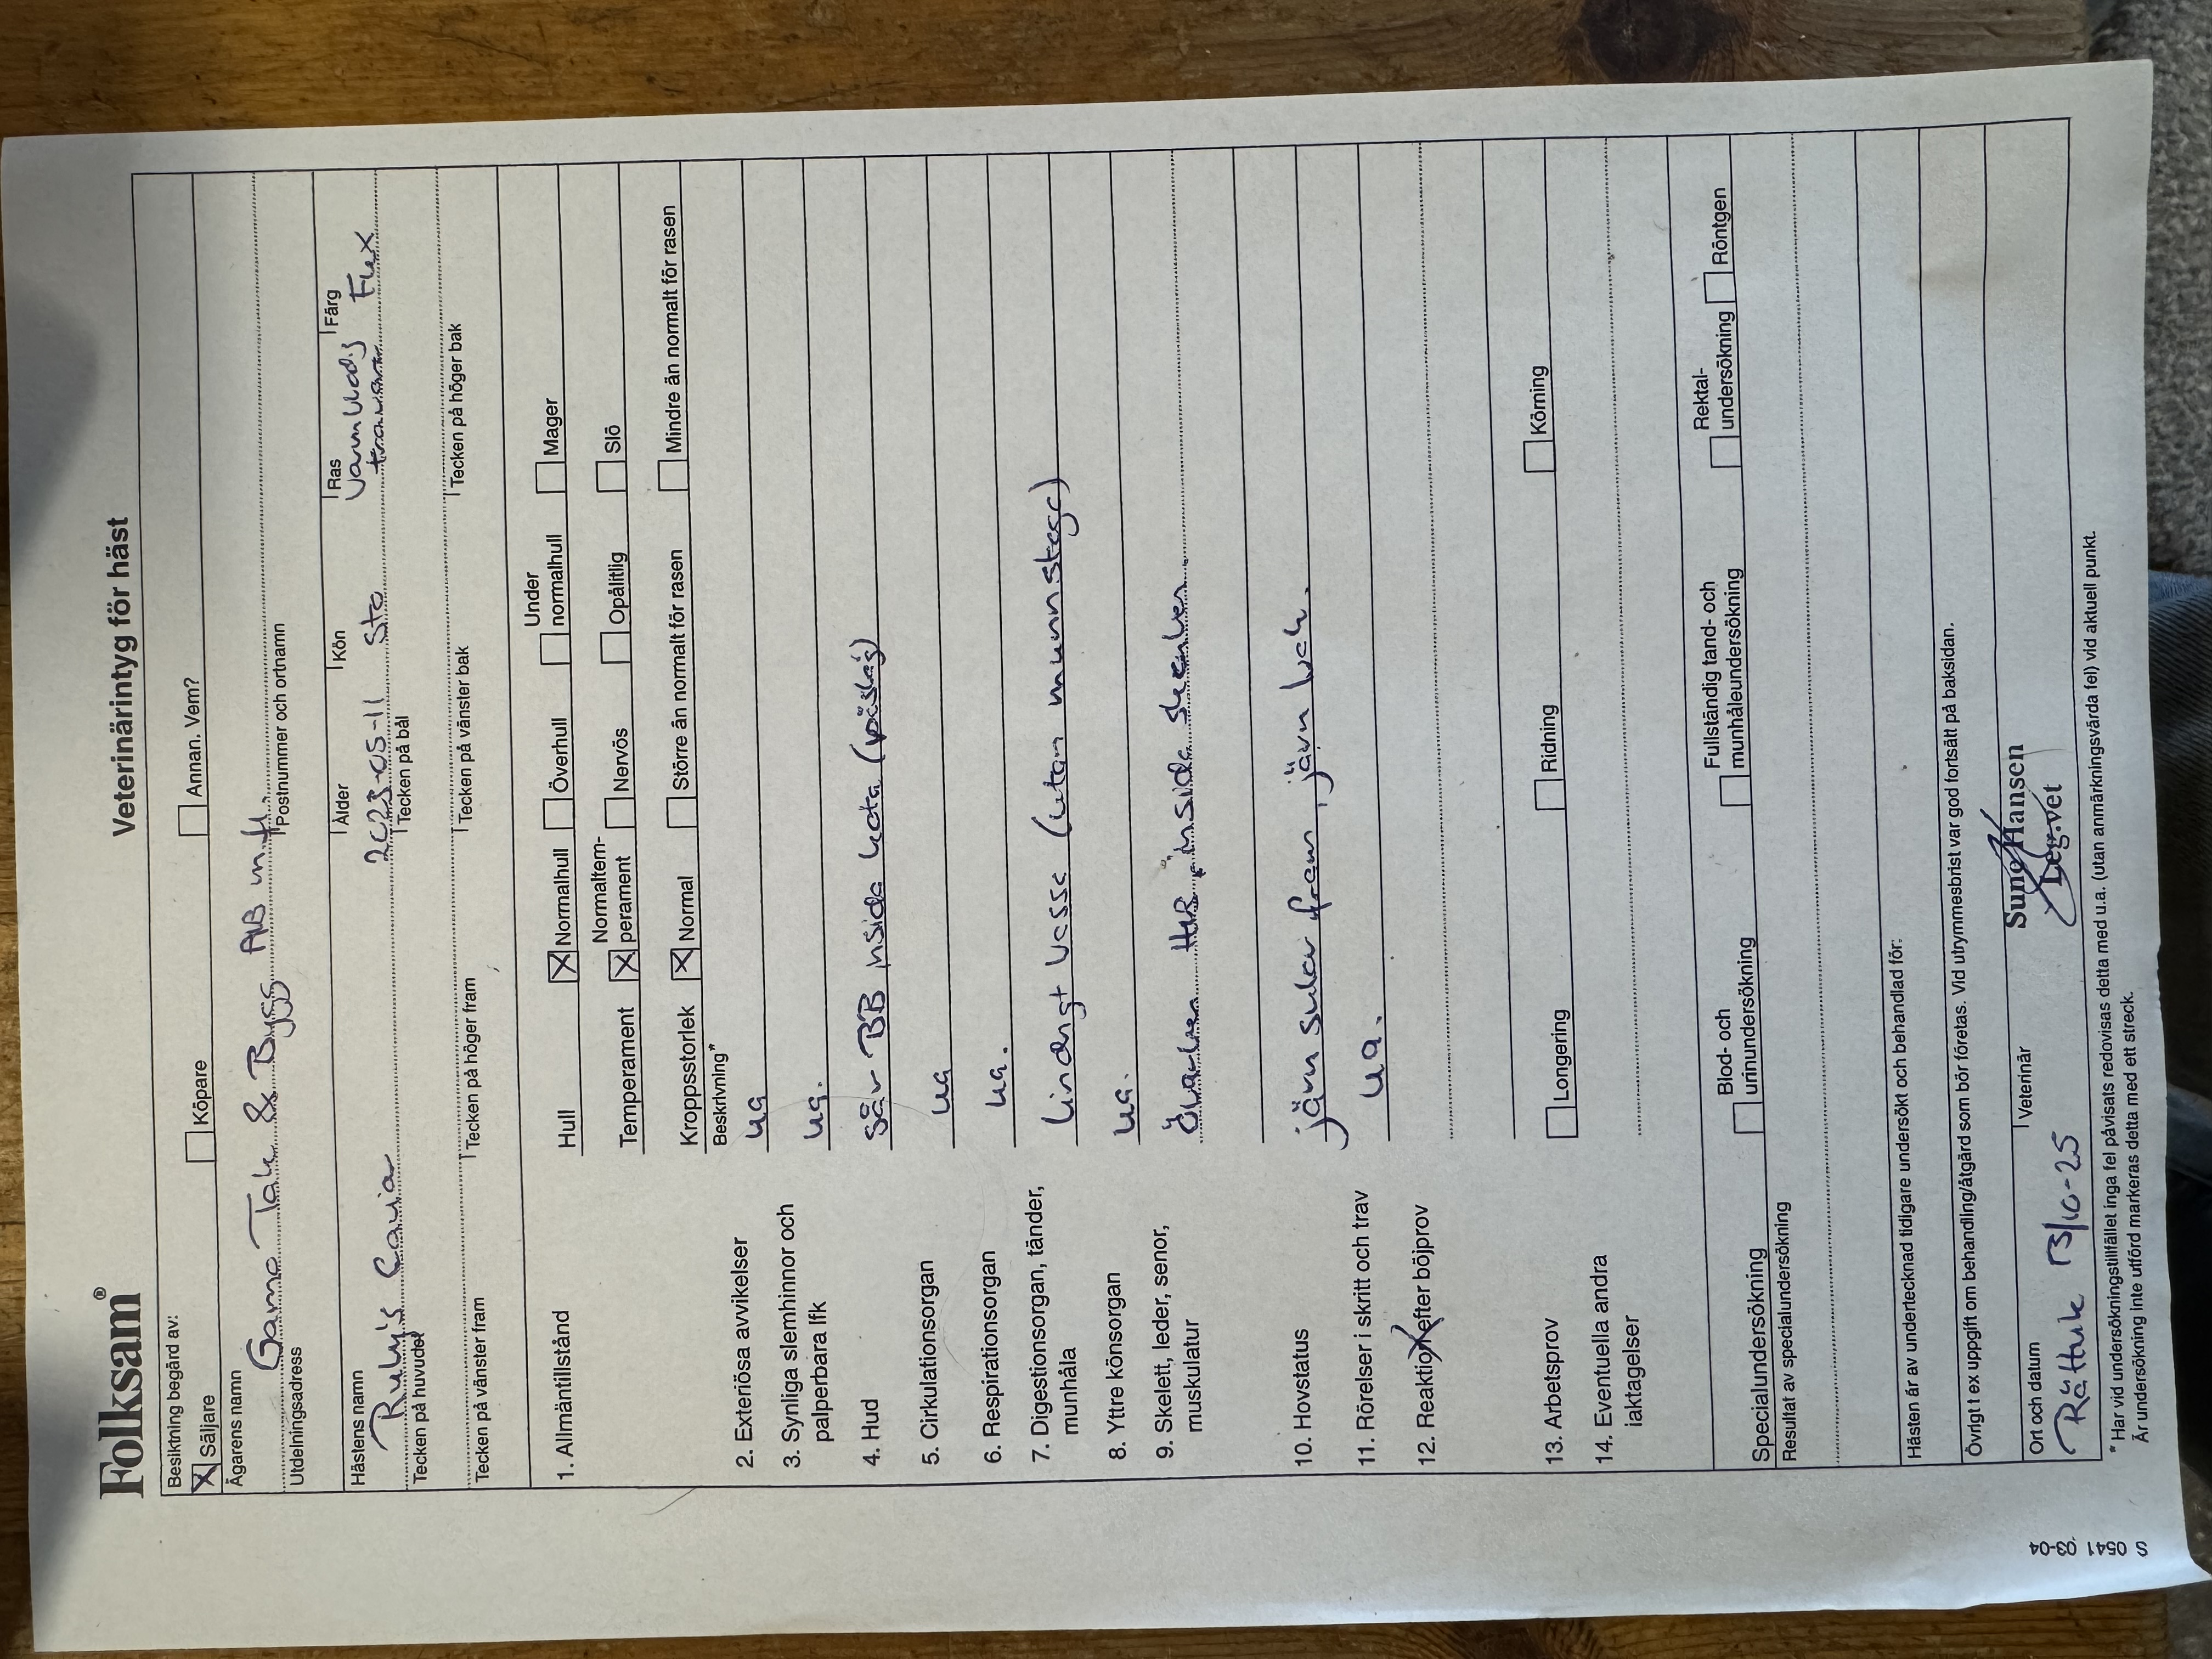 Folksam®
Veterinärintyg för häst
Besiktning begärd av:
X Säljare Köpare Annan. Vem?
Ägarens namn
Gamo Tak & Bygg AB
Utdelningsadress Postnummer och ortnamn
Hästens namn Ålder Kön Ras Färg
Ruby's Caviar 2023-05-11 Sto Varmblodig Fux
travare
Tecken på huvudet Tecken på bål
Tecken på vänster fram Tecken på höger fram Tecken på vänster bak Tecken på höger bak
1. Allmäntillstånd Hull X Normalhull Överhull Under normalhull Mager
Temperament X Normaltem-perament Nervös Opålitlig Slö
Kroppsstorlek X Normal Större än normalt för rasen Mindre än normalt för rasen
Beskrivning*
2. Exteriösa avvikelser ua
3. Synliga slemhinnor och ua.
palperbara lfk
4. Hud Sår BB insida kota (påslag)
5. Cirkulationsorgan ua
6. Respirationsorgan ua.
7. Digestionsorgan, tänder, Lindrigt vasse (utan munnstege)
munhåla
8. Yttre könsorgan ua.
9. Skelett, leder, senor, HB insida skenben
muskulatur
10. Hovstatus jävn sulor fram, jävn bak.
11. Rörelser i skritt och trav ua.
12. Reaktion efter böjprov
13. Arbetsprov Longering Ridning Körning
14. Eventuella andra
iaktagelser
Specialundersökning Blod- och urinundersökning Fullständig tand- och munhåleundersökning Rektal-undersökning Röntgen
Resultat av specialundersökning
Hästen är av undertecknad tidigare undersökt och behandlad för:
Övrigt t ex uppgift om behandling/åtgärd som bör företas. Vid utrymmesbrist var god fortsätt på baksidan.
Ort och datum Veterinär
Rättvik 13/10-25 Sune Hansen
Leg.vet
* Har vid undersökningstillfället inga fel påvisats redovisas detta med u.a. (utan anmärkningsvärda fel) vid aktuell punkt.
Är undersökning inte utförd markeras detta med ett streck.
S 0541 03-04